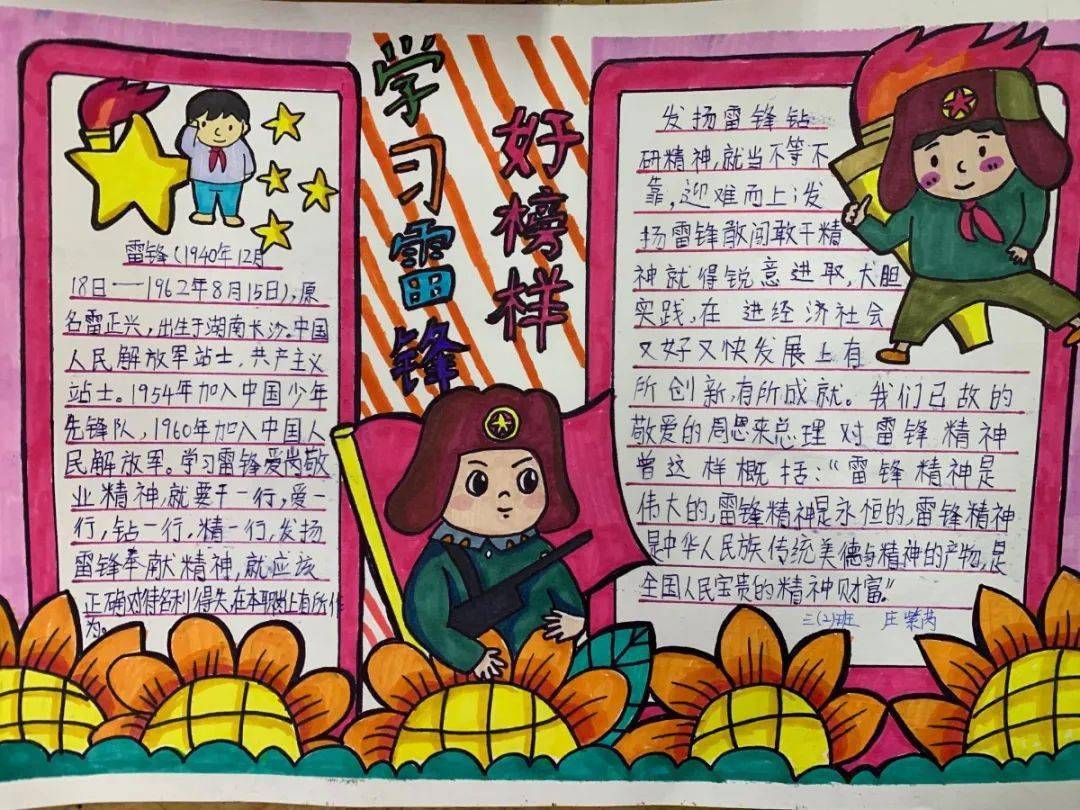 学习雷锋
好榜样
雷锋(1940年12月
18日——1962年8月15日),原
名雷正兴,出生于湖南长沙.中国
人民解放军站士,共产主义
站士。1954年加入中国少年
先锋队,1960年加入中国人
民解放军。学习雷锋爱岗敬
业精神,就要干一行,爱一
行,钻一行,精一行,发扬
雷锋奉献精神,就应该
正确对待名利得失,在本职岗上有所作
为。
发扬雷锋钻
研精神,就当不等不
靠,迎难而上;发
扬雷锋敢闯敢干精
神就得锐意进取,大胆
实践,在 进经济社会
又好又快发展上有
所创新,有所成就。我们已故的
敬爱的周恩来总理对雷锋精神
曾这样概括:“雷锋精神是
伟大的,雷锋精神是永恒的,雷锋精神
是中华人民族传统美德与精神的产物,是
全国人民宝贵的精神财富.”
三(2)班 庄紫芮